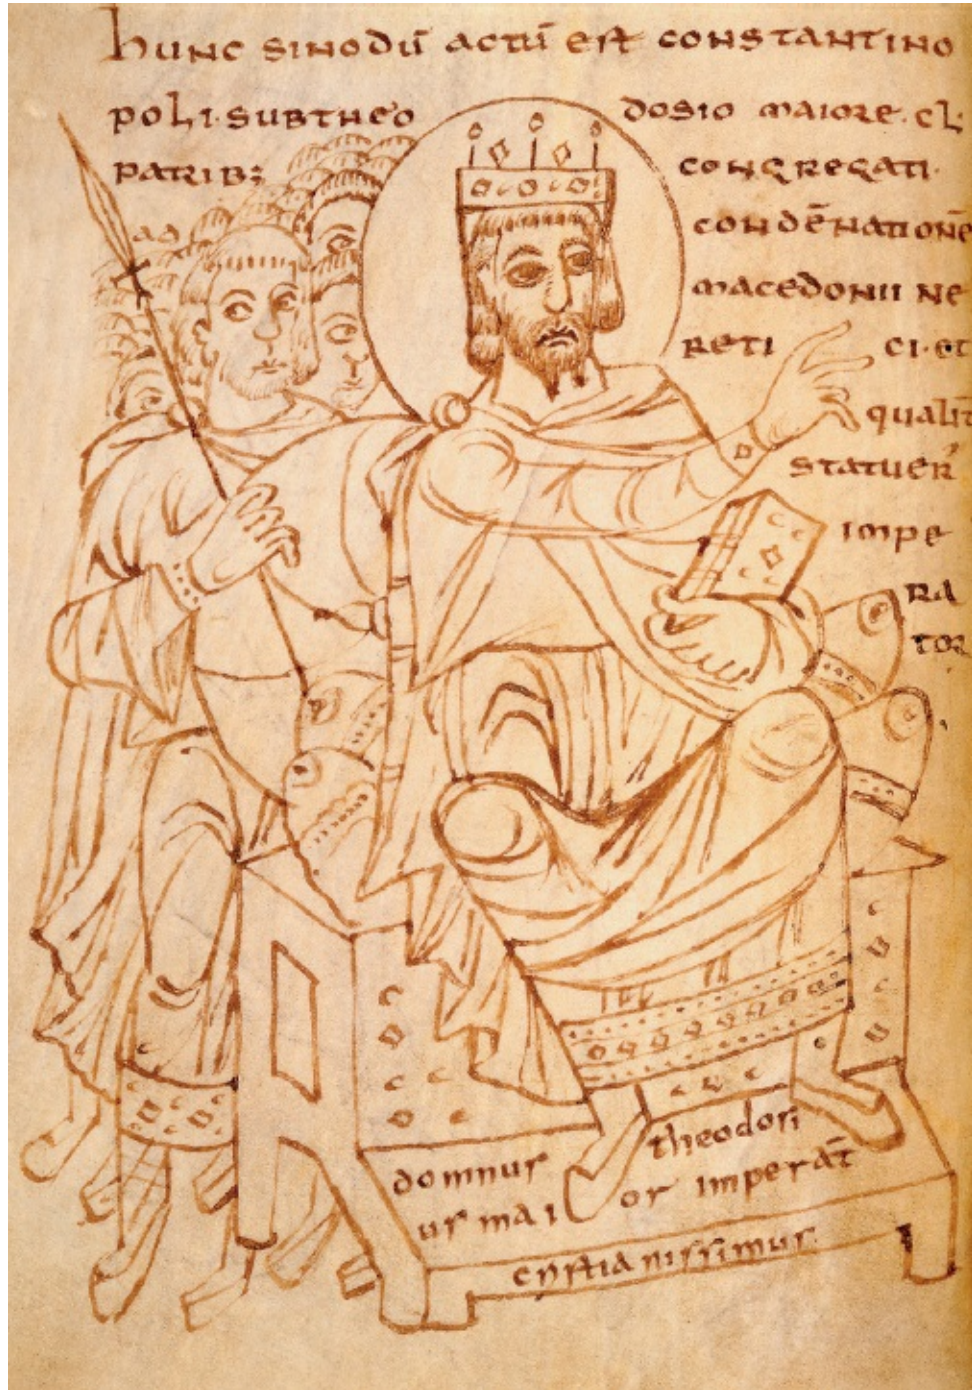 hunc sinodū actū est constantino
poli·subtheo dosio maiore·cl·
patrib; congregati·
ad condēnationē
macedonii he
reti ci·et
qualit̄
statuer̄
impe
ra
tor
domnus theodosi
us mai or imperat̄
cristianissimus·